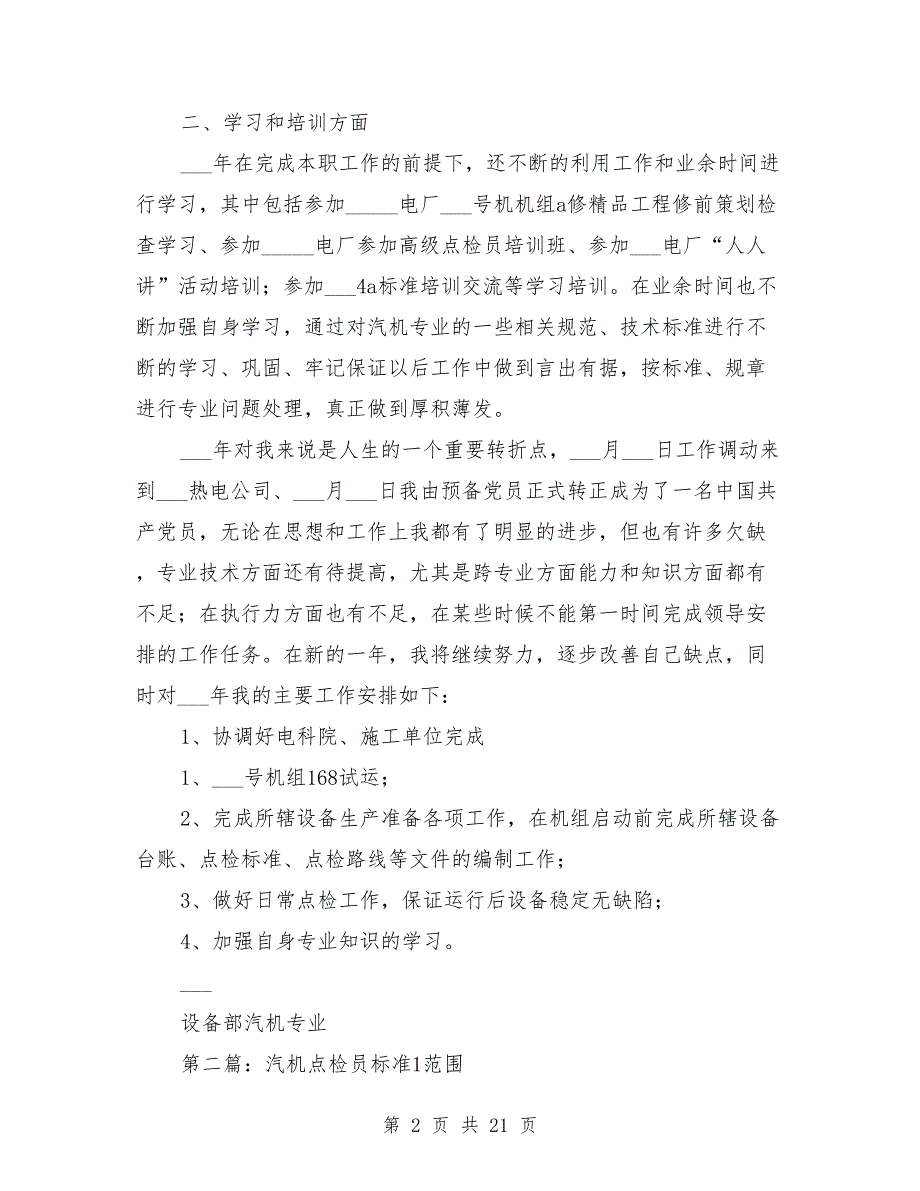 二、学习和培训方面
___年在完成本职工作的前提下，还不断的利用工作和业余时间进
行学习，其中包括参加_____电厂___号机机组a修精品工程修前策划检
查学习、参加_____电厂参加高级点检员培训班、参加___电厂“人人
讲”活动培训；参加___4a标准培训交流等学习培训。在业余时间也不
断加强自身学习，通过对汽机专业的一些相关规范、技术标准进行不
断的学习、巩固、牢记保证以后工作中做到言出有据，按标准、规章
进行专业问题处理，真正做到厚积薄发。
___年对我来说是人生的一个重要转折点，___月___日工作调动来
到___热电公司、___月___日我由预备党员正式转正成为了一名中国共
产党员，无论在思想和工作上我都有了明显的进步，但也有许多欠缺
，专业技术方面还有待提高，尤其是跨专业方面能力和知识方面都有
不足；在执行力方面也有不足，在某些时候不能第一时间完成领导安
排的工作任务。在新的一年，我将继续努力，逐步改善自己缺点，同
时对___年我的主要工作安排如下：
1、协调好电科院、施工单位完成
1、___号机组168试运；
2、完成所辖设备生产准备各项工作，在机组启动前完成所辖设备
台账、点检标准、点检路线等文件的编制工作；
3、做好日常点检工作，保证运行后设备稳定无缺陷；
4、加强自身专业知识的学习。
___
设备部汽机专业
第二篇：汽机点检员标准1范围
第 2 页 共 21 页